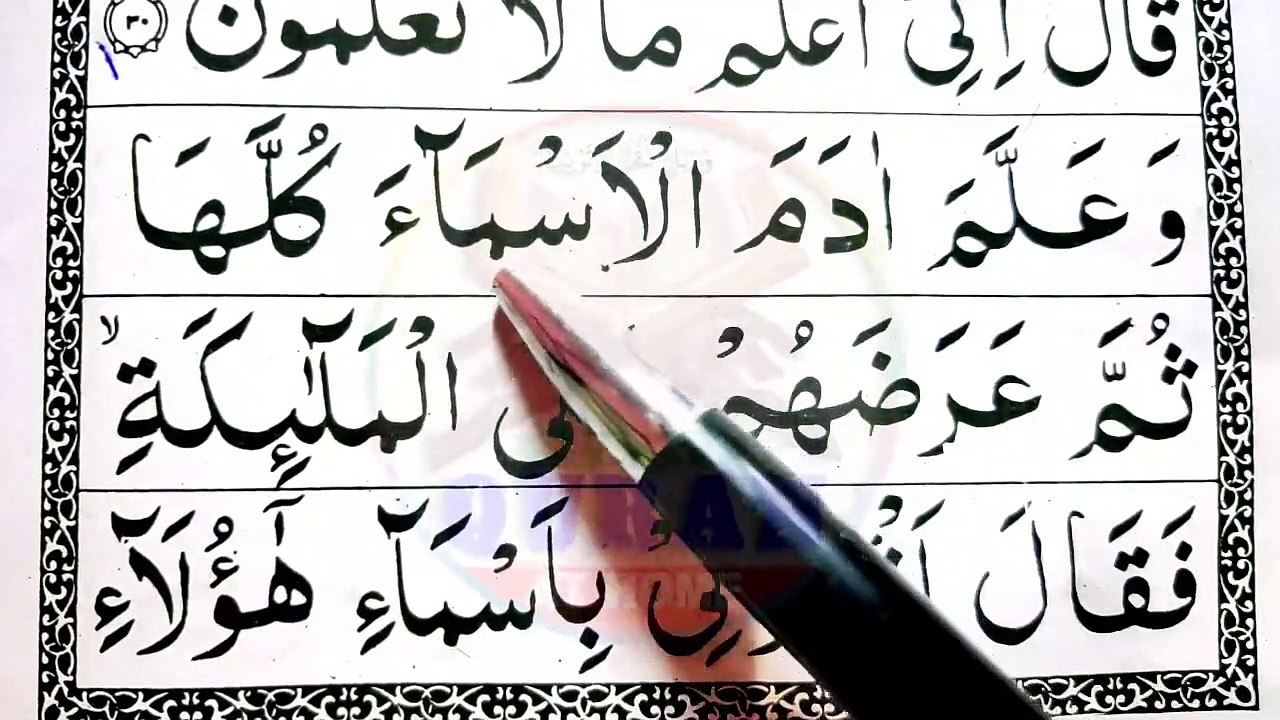 قَالَ اِنِّىْ اَعْلَمُ مَا لَا تَعْلَمُوْنَ ۳۰
وَ عَلَّمَ اٰدَمَ الْاَسْمَآءَ كُلَّهَا
ثُمَّ عَرَضَهُمْ الْمَلٰٓئِكَةِ ۙ
فَقَالَ بِاَسْمَآءِ هٰٓؤُلَآءِ